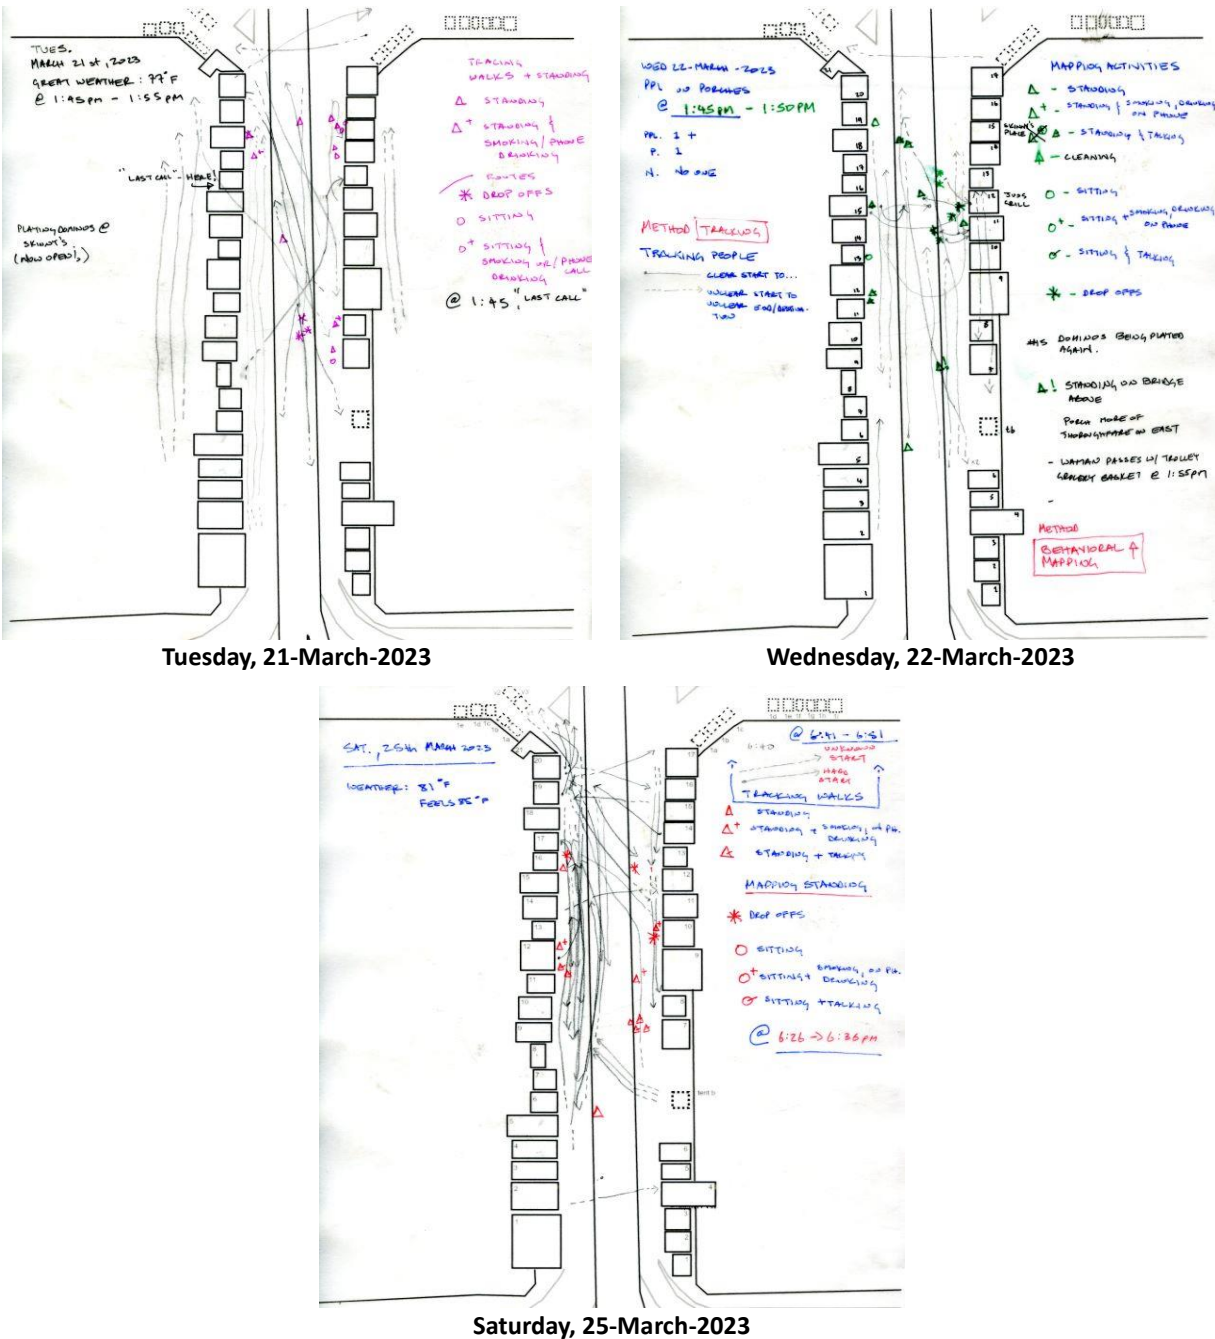 TUES.
MARCH 21st, 2023
GREAT WEATHER: 77°F
@ 1:45pm - 1:55pm
"LAST CALL" - HERE!
PLAYING DOMINOS @
SKINNY'S
(NOW OPEN!,)
TRACING
WALKS + STANDING
STANDING
STANDING &
SMOKING/PHONE
DRINKING
ROUTES
DROP OFFS
SITTING
SITTING &
SMOKING OR/PHONE
DRINKING CALL
@ 1:45, "LAST CALL"
Tuesday, 21-March-2023
WED 22-MARCH-2023
PPL ON PORCHES
@ 1:45pm - 1:50PM
PPL. 1 +
P. 1
N. NO ONE
METHOD TRACKING
TRACKING PEOPLE
CLEAR START TO...
UNCLEAR START TO
UNCLEAR END/
MAPPING ACTIVITIES
- STANDING
- STANDING & SMOKING, DRINKING
ON PHONE
- STANDING & TALKING
- CLEANING
- SITTING
- SITTING + SMOKING, DRINKING
ON PHONE
- SITTING & TALKING
- DROP OFFS
SKINNY'S
PLACE
GRILL
#15 DOMINOS BEING PLAYED
AGAIN.
! STANDING ON BRIDGE
ABOVE
PORCH MORE OF
THOROUGHFARE ON EAST
- WOMAN PASSES W/ TROLLEY
GROCERY BASKET @ 1:55pm
-
METHOD
BEHAVIORAL
MAPPING
t6
x2
20
19
18
17
16
15
14
13
12
11
10
9
8
7
6
5
4
3
2
1
17
16
15
14
13
12
10
9
8
7
6
5
4
3
2
1
Wednesday, 22-March-2023
SAT., 25th MARCH 2023
WEATHER: 81°F
FEELS 85°F
@ 6:41 - 6:51
6:40
UNKNOWN
START
HARD
START
TRACKING WALKS
STANDING
STANDING + SMOKING, ON PH.
DRINKING
STANDING + TALKING
MAPPING STANDING
DROP OFFS
SITTING
SITTING + SMOKING, ON PH.
DRINKING
SITTING + TALKING
@ 6:26 -> 6:36pm
tent 6
21
20
19
18
17
16
15
14
13
12
11
10
9
8
7
6
5
4
3
2
1
17
16
15
14
13
12
11
10
9
8
7
6
5
4
3
2
1
Saturday, 25-March-2023